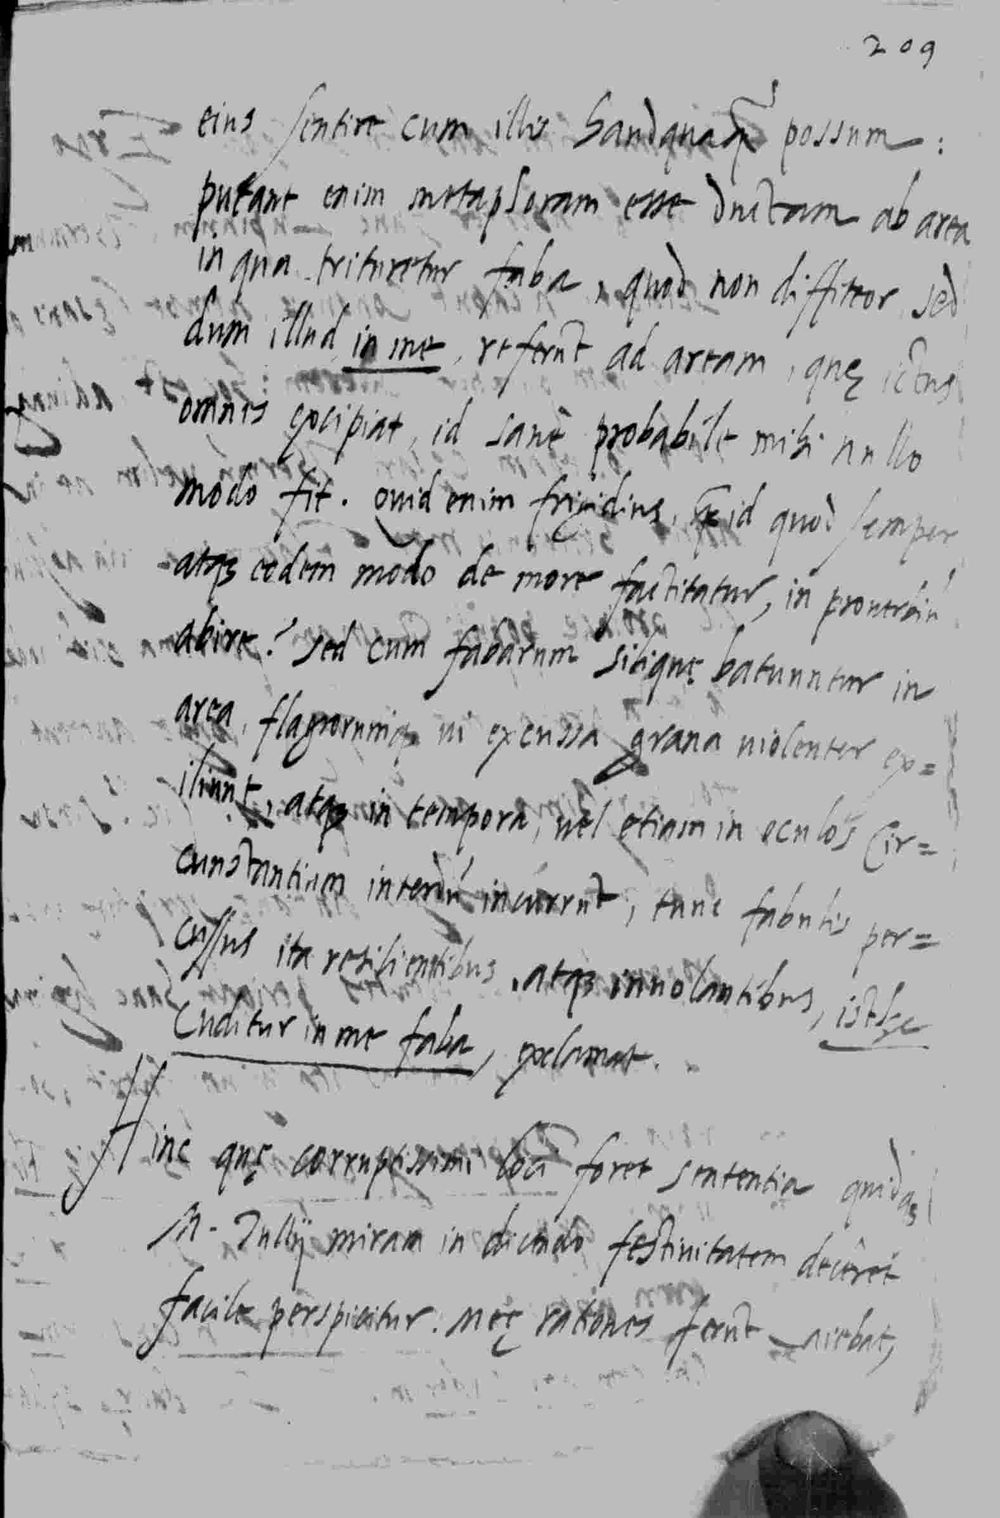 209
eius sentire cum illis haudquaq̃ possum :
putant enim metaphoram esse ductam ab area
in qua trituretur faba, quod non diffiteor, sed
dum illud in me, referũt ad aream, quę ictus
omnis excipiat, id sanè probabile mihi nullo
modo fit. Quid enim frigidius, q̃ id quod semper
atqꝫ eodem modo de more factitatur, in
abire? sed cum fabarum siliquę batuuntur in
area, flagrorumqꝫ ui excussa grana uiolenter ex=
iliunt, atqꝫ in tempora, uel etiam in oculos cir=
cunstantium interdũ incurrũt, tunc fabulis per=
cussus ita resilientibus, atqꝫ inuolantibus, isthęc
cuditur in me faba, exclamat.
Hinc quę corruptissimi loci foret sententia quidqꝫ
M. Tullij miram in dicẽdo festiuitatem decêret
facile perspicitur. Meę rationes ferũt aiebat,